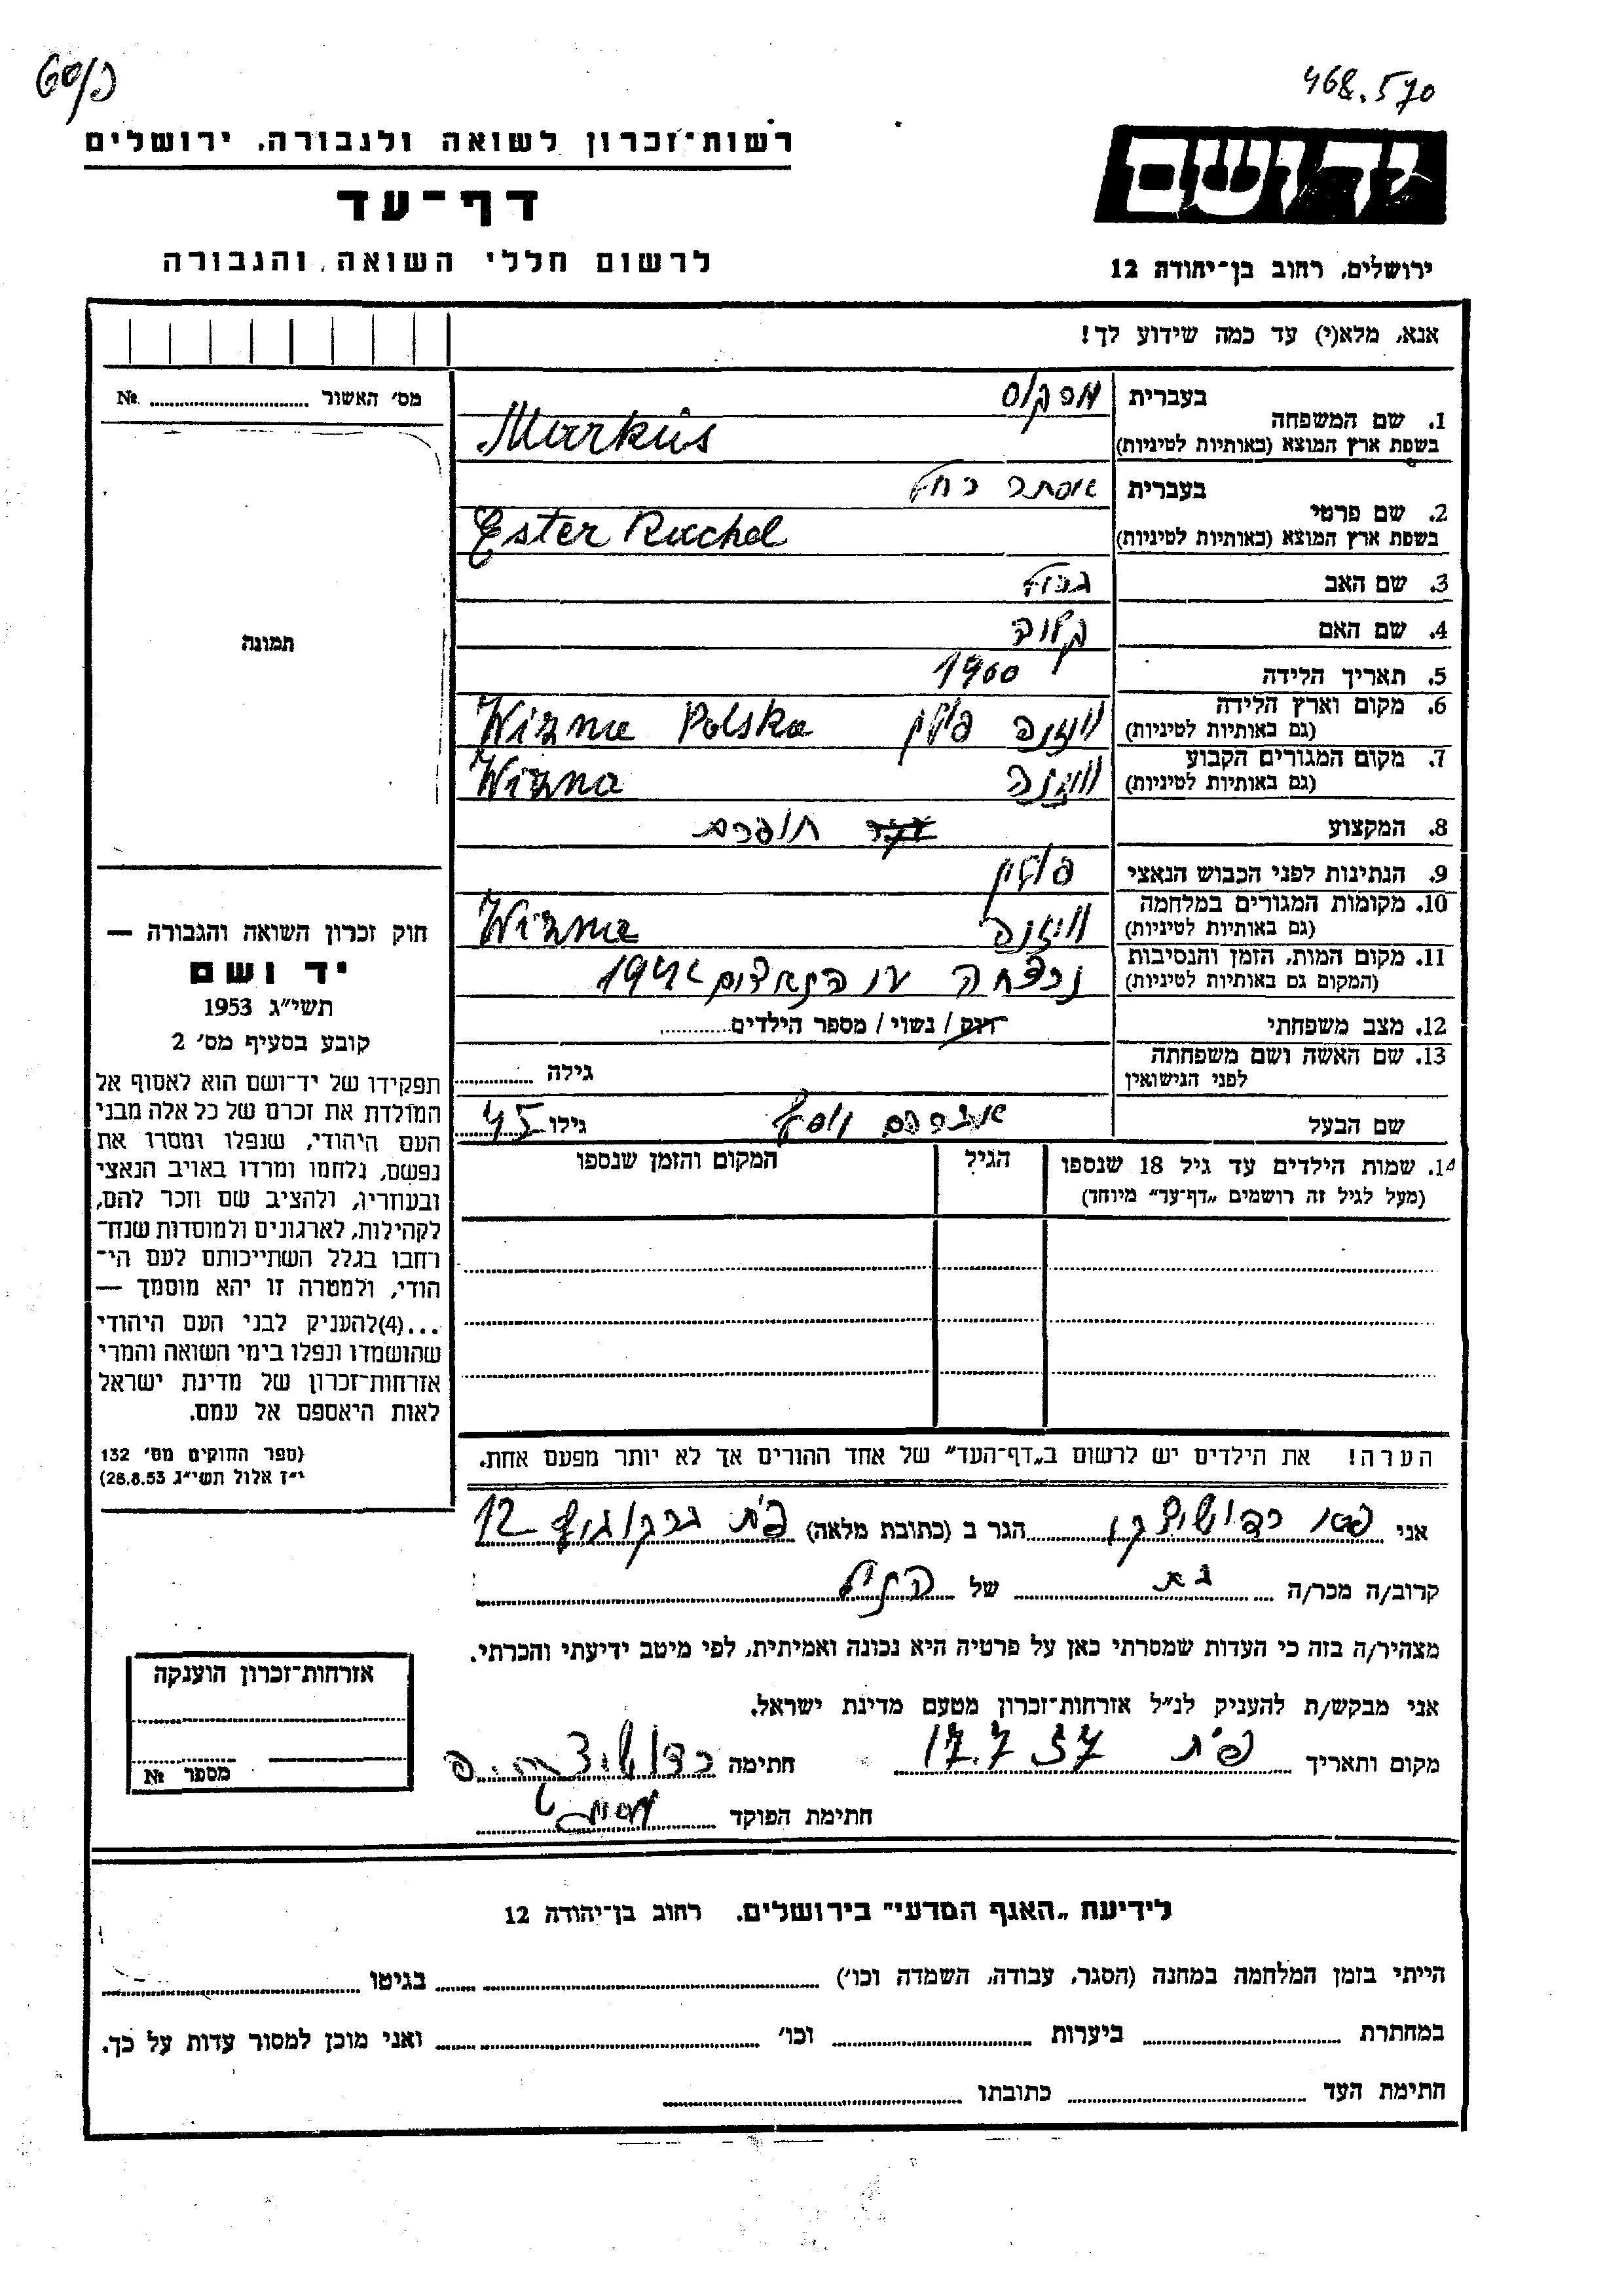 468.570
רשות־זכרון לשואה ולגבורה, ירושלים
יד ושם
דף־עד
לרשום חללי השואה והגבורה
ירושלים, רחוב בן־יהודה 12
אנא, מלא(י) עד כמה שידוע לך!
מס׳ האשור № 
1. שם המשפחה
בעברית מרקוס
בשפת ארץ המוצא (באותיות לטיניות) Markus
2. שם פרטי
בעברית אסתר רחל
בשפת ארץ המוצא (באותיות לטיניות) Ester Rachel
3. שם האב
4. שם האם
5. תאריך הלידה 1900
6. מקום וארץ הלידה
(גם באותיות לטיניות) וויזנה פולין Wizna Polska
7. מקום המגורים הקבוע
(גם באותיות לטיניות) וויזנה Wizna
8. המקצוע תופרת
9. הנתינות לפני הכבוש הנאצי פולין
10. מקומות המגורים במלחמה
(גם באותיות לטיניות) וויזנה Wizna
11. מקום המות, הזמן והנסיבות
(המקום גם באותיות לטיניות) נרצחה
12. מצב משפחתי רווק / נשוי / מספר הילדים
13. שם האשה ושם משפחתה
לפני הנישואין גילה
שם הבעל אברהם יוסף גילו 45
14. שמות הילדים עד גיל 18 שנספו
(מעל לגיל זה רושמים „דף־עד״ מיוחד)
הגיל
המקום והזמן שנספו
תמונה
חוק זכרון השואה והגבורה —
יד ושם
תשי״ג 1953
קובע בסעיף מס׳ 2
תפקידו של יד־ושם הוא לאסוף אל
המולדת את זכרם של כל אלה מבני
העם היהודי, שנפלו ומסרו את
נפשם, נלחמו ומרדו באויב הנאצי
ובעוזריו, ולהציב שם וזכר להם,
לקהילות, לארגונים ולמוסדות שנח־
רחבו בגלל השתייכותם לעם הי־
הודי, ולמטרה זו יהא מוסמך —
...(4)להעניק לבני העם היהודי
שהושמדו ונפלו בימי השואה והמרי
אזרחות־זכרון של מדינת ישראל
לאות היאספם אל עמם.
(ספר החוקים מס׳ 132
י״ז אלול תשי״ג 28.8.53)
הערה! את הילדים יש לרשום ב„דף־העד״ של אחד ההורים אך לא יותר מפעם אחת.
אני הגר ב (כתובת מלאה) 12
קרוב/ה מכר/ה בת של
מצהיר/ה בזה כי העדות שמסרתי כאן על פרטיה היא נכונה ואמיתית, לפי מיטב ידיעתי והכרתי.
אני מבקש/ת להעניק לנ״ל אזרחות־זכרון מטעם מדינת ישראל.
מקום ותאריך פ״ת 17.7.57 חתימה
חתימת הפוקד
אזרחות־זכרון הוענקה
מספר №
לידיעת „האגף המדעי״ בירושלים. רחוב בן־יהודה 12
הייתי בזמן המלחמה במחנה (הסגר, עבודה, השמדה וכו׳) בגיטו
במחתרת ביערות וכו׳ ואני מוכן למסור עדות על כך.
חתימת העד כתובתו